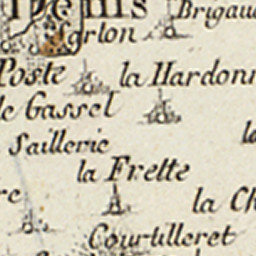 Denis
Brigaud
Porlon
Poste
la Hardonn
le Gassel
Saillerie
la
la Frette
re
la Ch
Courtilleret